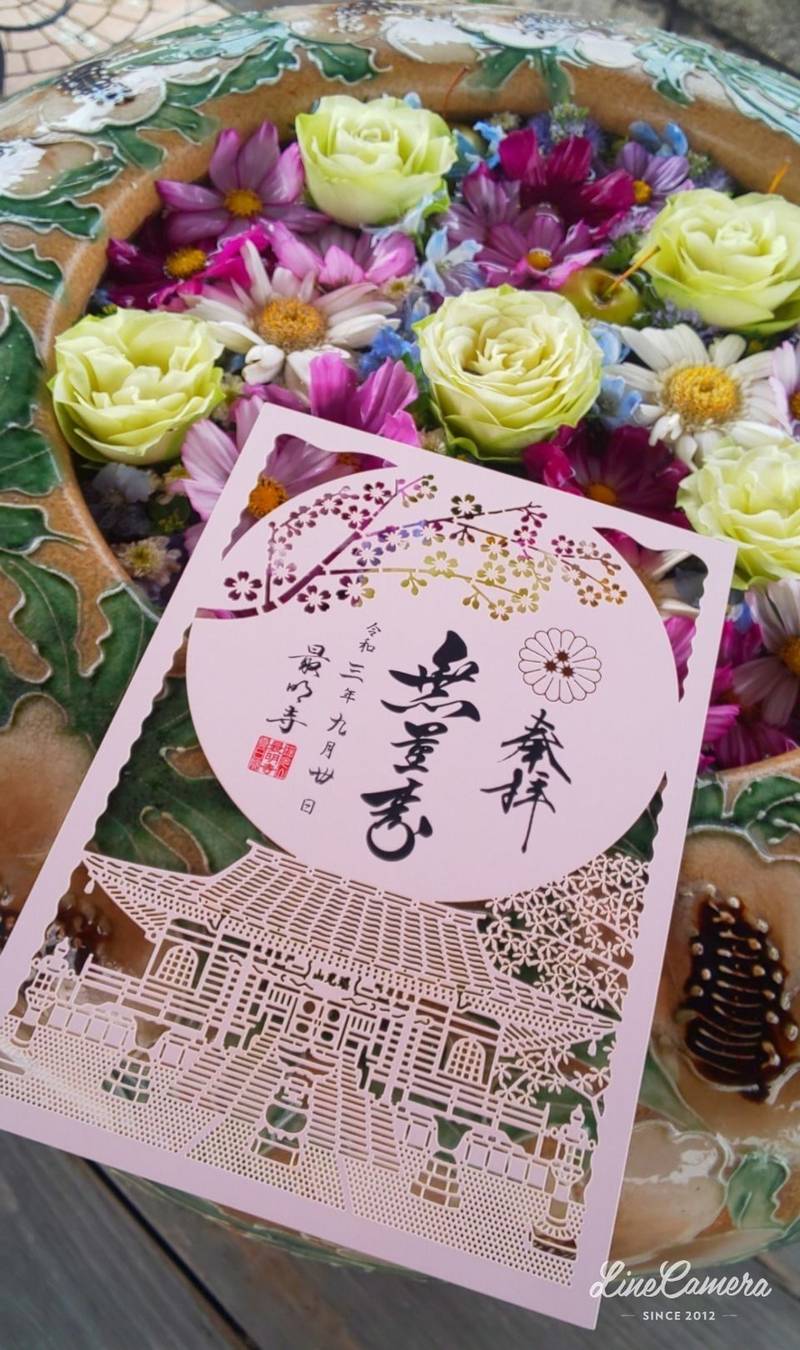 奉拝
無量寿
令和三年九月廿日
最明寺
瑞光山
LineCamera
SINCE 2012